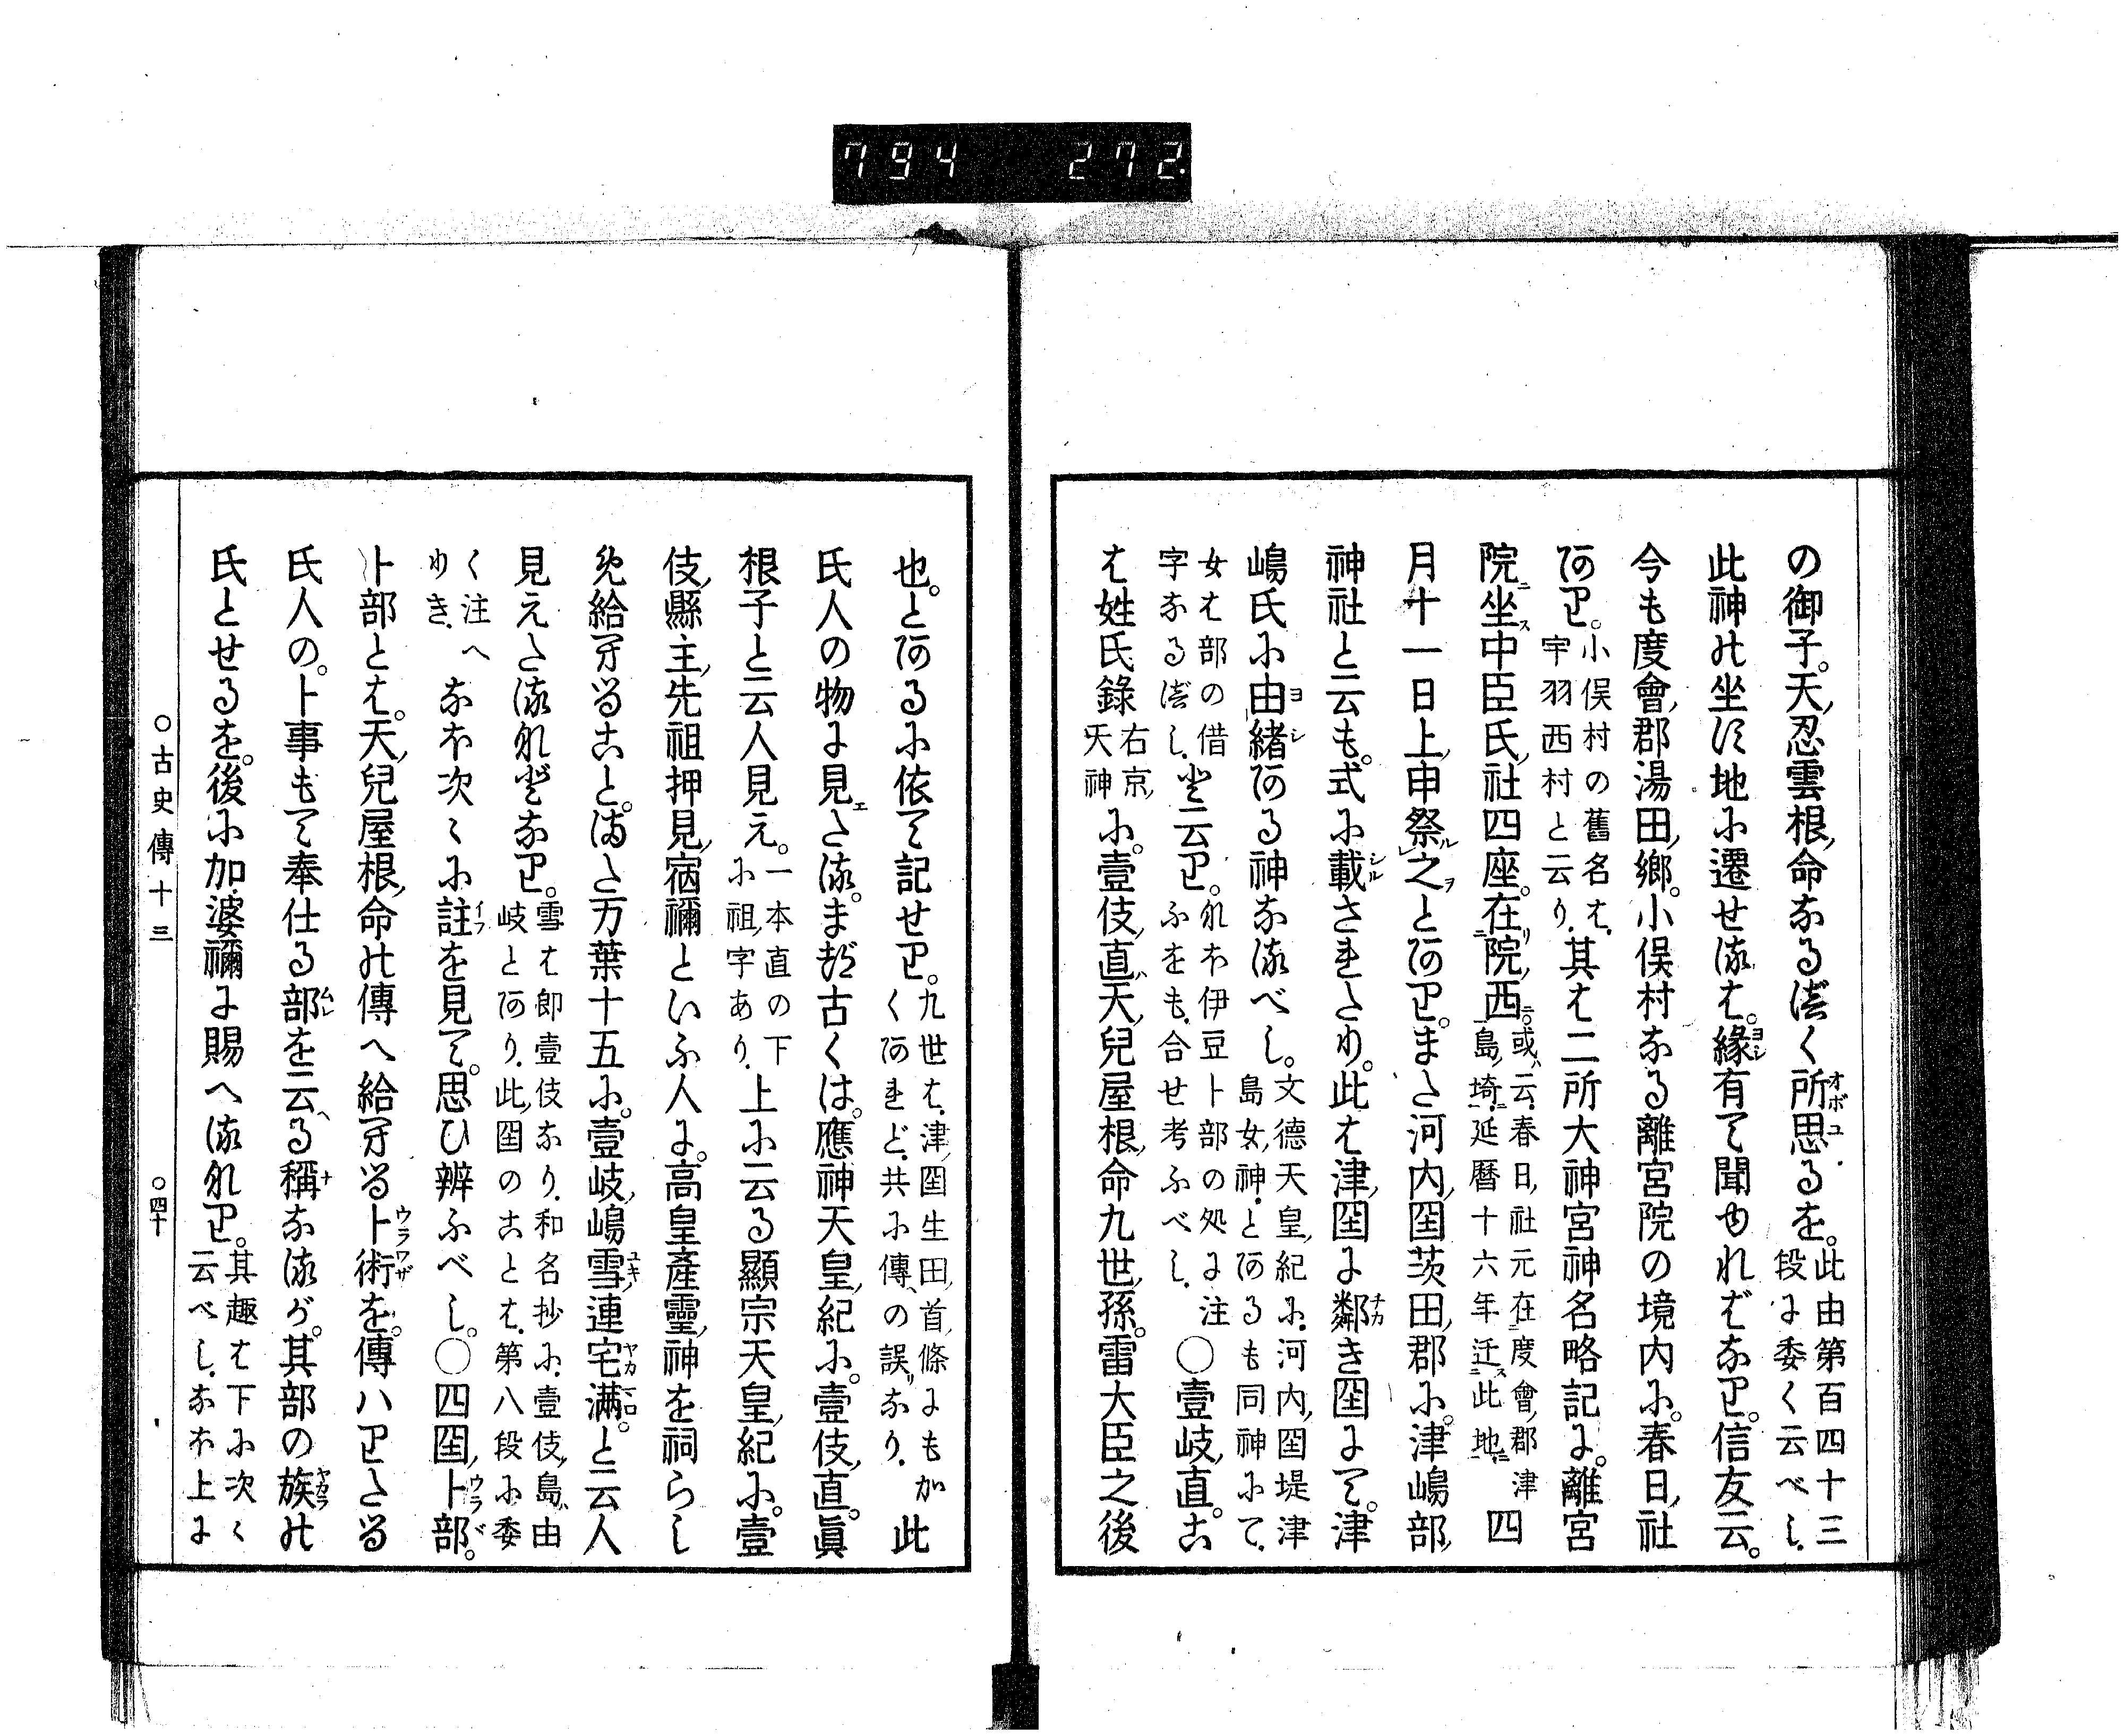 794 272.
の御子。天忍雲根命なるべく所思るを。此由第百四十三段に委く云べし.
此神の坐す地に遷せるは。縁有て聞ゆればなり。信友云。
今も度會郡湯田郷。小俣村なる離宮院の境内に。春日社
あり。小俣村の舊名は.宇羽西村と云り.其は二所大神宮神名略記に。離宮
院坐中臣氏社四座。在院西。或云.春日社元在度會郡津島埼.延暦十六年迁此地四
月十一日上申祭之とあり。また河内国茨田郡に。津嶋部
神社と云も。式に載されたり。此は津国に鄰き国にて。津
嶋氏に由緒ある神なるべし。文德天皇紀に.河内国堤津島女神.とあるも同神にて.
女は部の借字なるべし.と云り。なほ伊豆卜部の処に注ふをも.合せ考ふべし.〇壹岐直。こ
は姓氏錄右京天神に。壹伎直天兒屋根命九世孫。雷大臣之後
也。とあるに依て記せり。九世は.津国生田首條にもかくあれど.共に傳の誤なり.此
氏人の物に見たる。まづ古くは。應神天皇紀に。壹伎直。眞
根子と云人見え。一本直の下に祖字あり.上に云る顯宗天皇紀に。壹
伎縣主先祖押見宿禰といふ人に。高皇產靈神を祠らし
め給へること。また万葉十五に。壹岐嶋雪連宅満。と云人
見えたるれどなり。雪は即壹伎なり.和名抄に.壹伎島由岐とあり.此国のことは.第八段に委
く注へりき.なほ次々に註を見て。思ひ辨ふべし。〇四国卜部。
卜部とは。天兒屋根命の傳へ給へる卜術を。傳ハりたる
氏人の。卜事もて奉仕る部を云る稱なるが。其部の族の
氏とせるを。後に加婆禰に賜へるなり。其趣は下に次々云べし.なほ上に
〇古史傳十三 〇四十